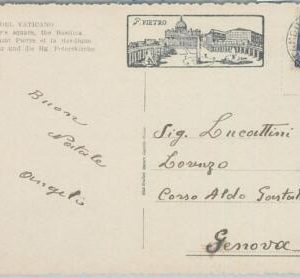 DEL VATICANO
's square, the Basilica
Saint Pierre et la Basilique
und die Hg. Peterskirche
S. PIETRO
Buon
Natale
Angelo
Sig. Lucattini
Lorenzo
Corso Aldo
Genova